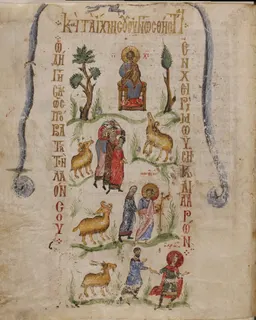 Κ ΤΑ ΙΧΝΗ CΟΥ ΟΥ ΓΝΩCΘΗCΟΝΤ
ΩΔΗΓΗCΑC ΩC ΠΡΟΒΑΤΑ ΤΟΝ ΛΑΟΝ CΟΥ
ΕΝ ΧΕΙΡΙ ΜΩΥCΗ ΚΑΙ ΑΑΡΩΝ